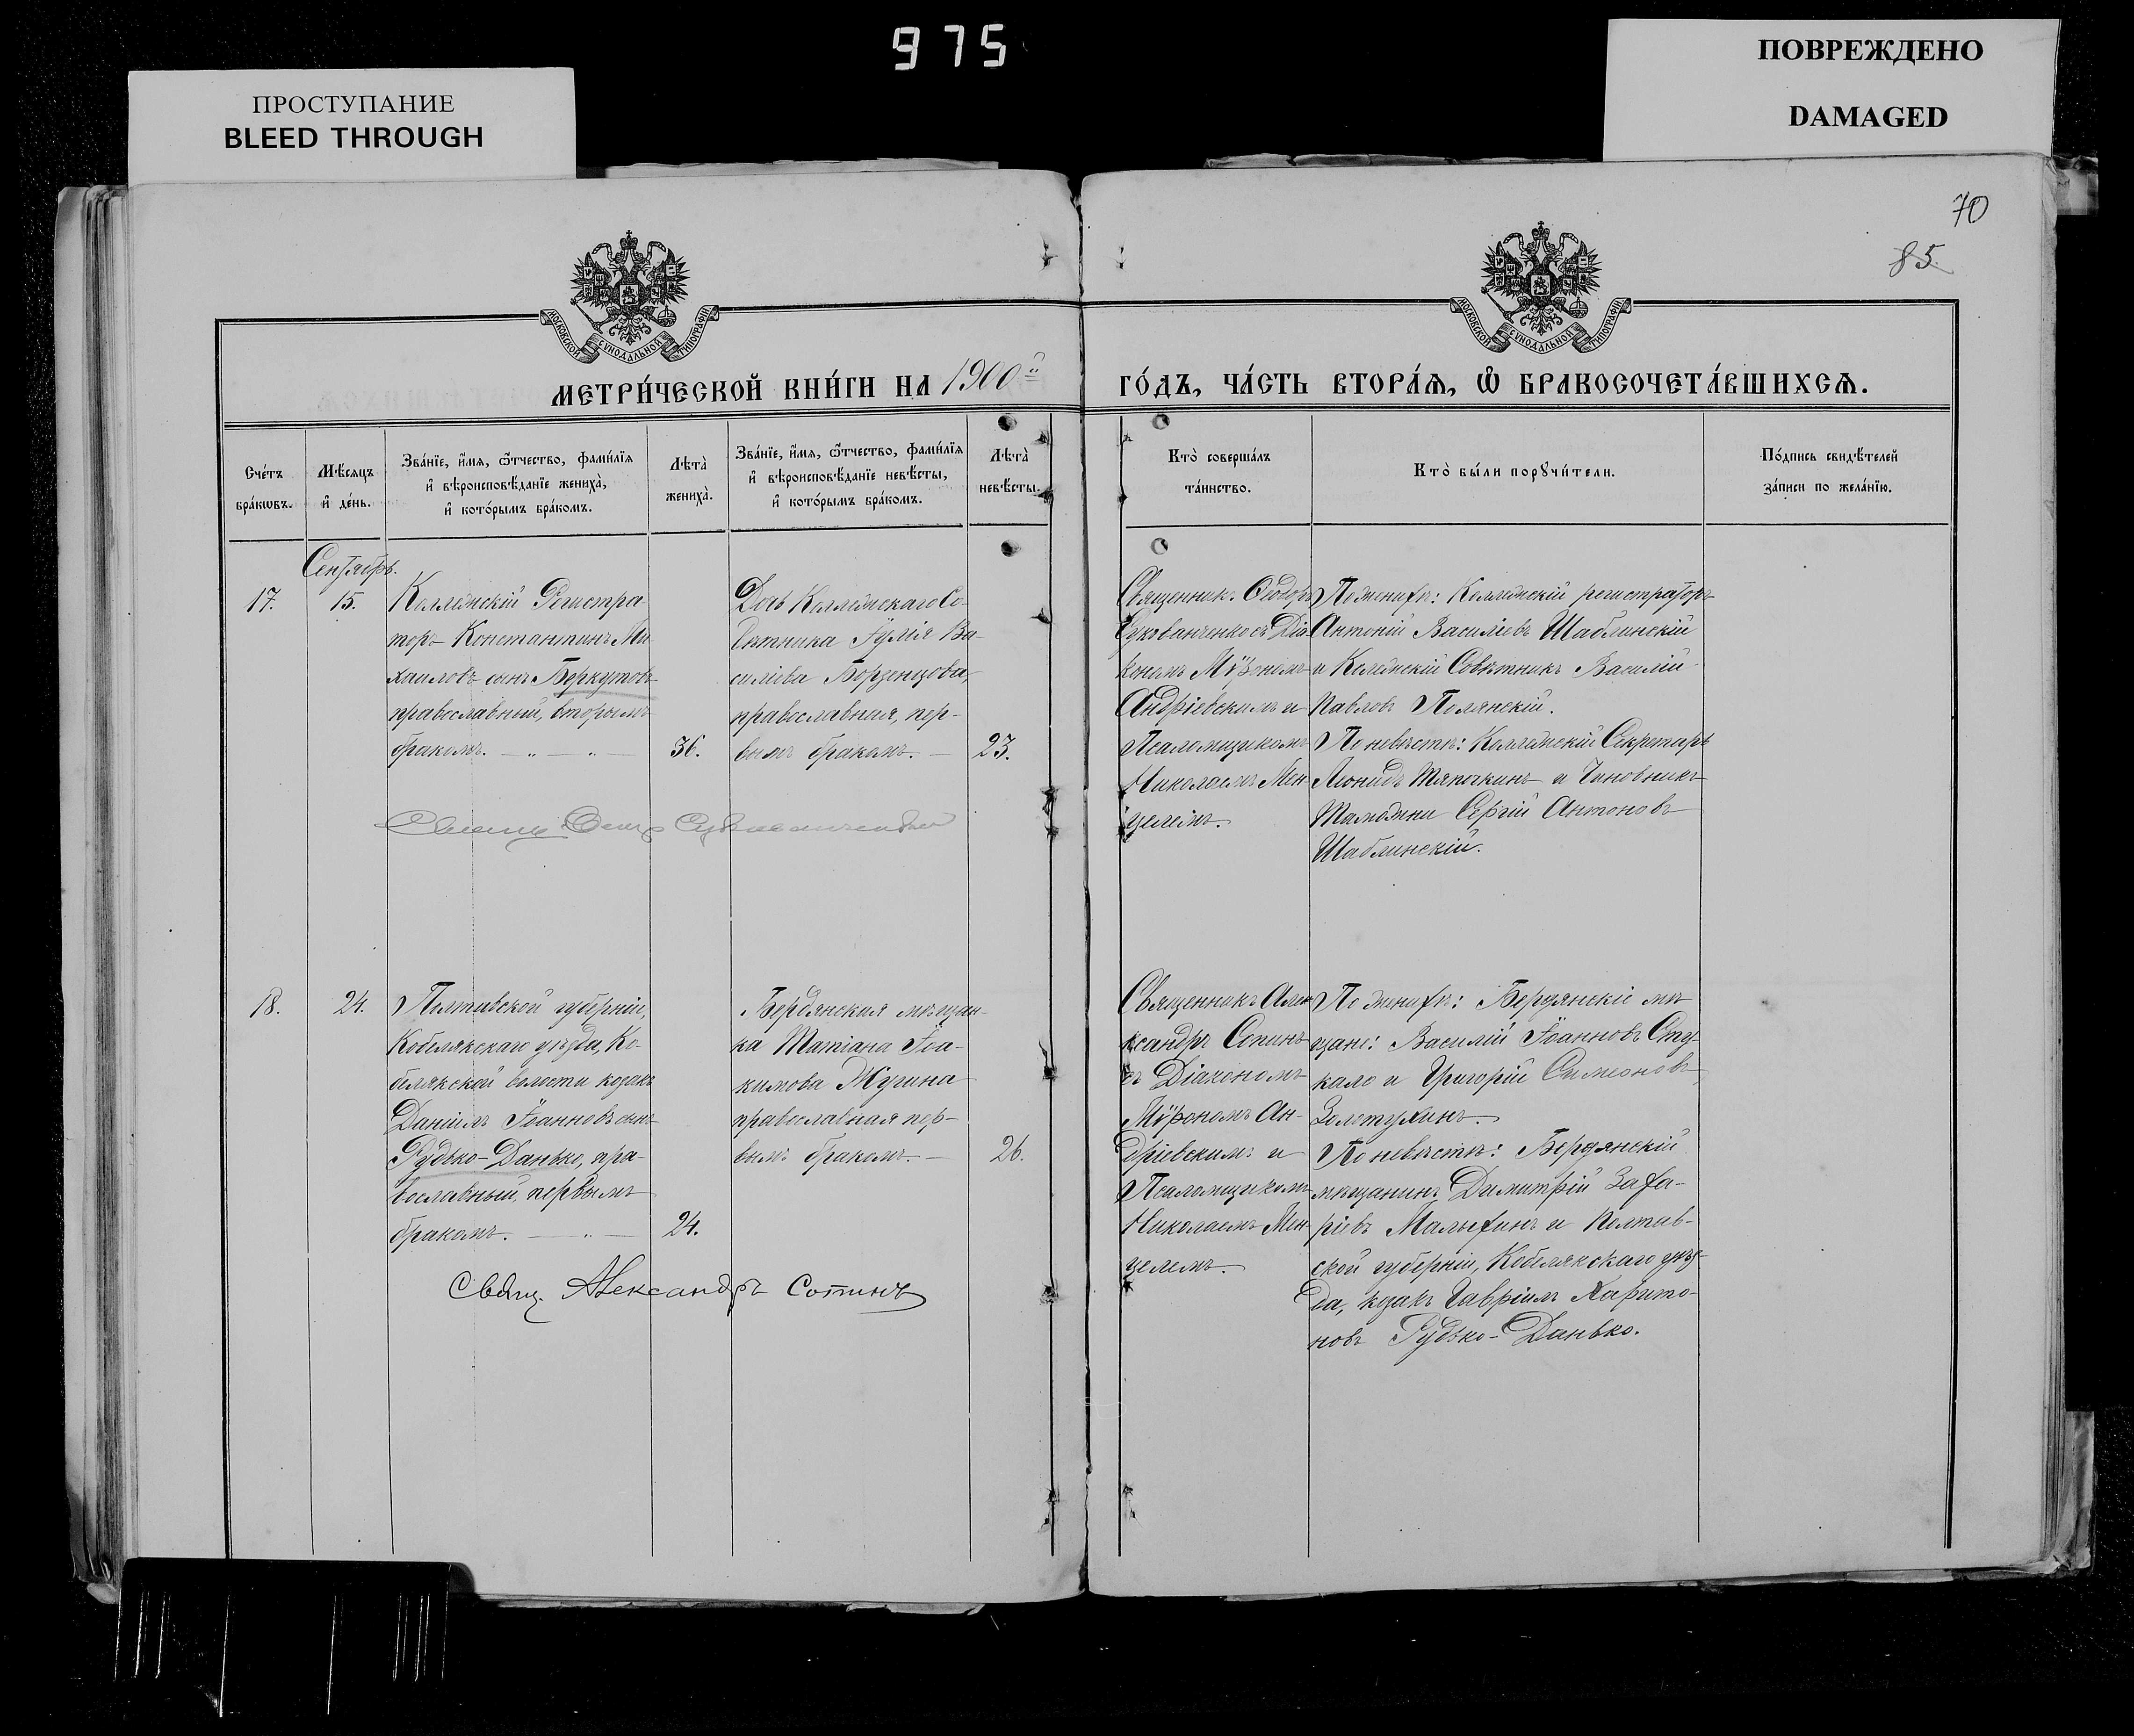 975
ПРОСТУПАНИЕ
BLEED THROUGH
ПОВРЕЖДЕНО
DAMAGED
70
85.
МОСКОВСКОЙ СѴНОДАЛЬНОЙ ТИПОГРАФІИ
МОСКОВСКОЙ СѴНОДАЛЬНОЙ ТИПОГРАФІИ
МЕТРИ́ЧЕСКОЙ КНИ́ГИ НА 1900й
ГО́ДЪ, ЧА́СТЬ ВТОРА́Ѧ, Ѡ БРАКОСОЧЕТА́ВШИХСѦ.
Сче́тъ
бра́кѡвъ.
Мѣ́сѧцъ
и҆ де́нь.
Зва́нїе, и҆́мѧ, ѻ҆́тчество, фами́лїѧ
и҆ вѣроисповѣ́данїе жениха̀,
и҆ кото́рымъ бра́комъ.
Лѣта̀
жениха̀.
Зва́нїе, и҆́мѧ, ѻ҆́тчество, фами́лїѧ
и҆ вѣроисповѣ́данїе невѣ́сты,
и҆ кото́рымъ бра́комъ.
Лѣта̀
невѣ́сты.
Кто̀ соверша́лъ
та́инство.
Кто̀ бы́ли порꙋчи́тели.
По́дпись свидѣ́телей
за́писи по жела́нїю.
Сентябрь.
17.
15.
Коллежскій Регистра
торъ Константинъ Ми
хаиловъ сынъ Беркутовъ
православный, вторымъ
бракомъ. — „ — „ —
36.
Дочь Коллежскаго Со-
вѣтника Іулія Ва-
силіева Борзенцова,
православная, пер-
вымъ бракомъ. —
23.
Священникъ Ѳеодоръ
Сукованченко съ Діа
кономъ Мѵрономъ
Андріевскимъ и
Псаломщикомъ
Николаемъ Мен-
целемъ.
По женихѣ: Коллежскій регистраторъ
Антоній Василіевъ Шаблинскій
и Колежскій Совѣтникъ Василій
Павловъ Полянскій.
По невѣстѣ: Коллежскій Секретарь
Леонидъ Тяпочкинъ и Чиновникъ
Таможни Сергій Антоновъ
Шаблинскій.
18.
24.
Полтавской губерніи,
Кобелякскаго уѣзда, Ко-
белякской волости козакъ
Даніилъ Іоанновъ сынъ
Рудько-Данько, пра-
вославный, первымъ
бракомъ. — „ —
24.
Бердянская мѣщан-
ка Татіана Іоа-
кимова Жугина
православная пер-
вымъ бракомъ. —
26.
Священникъ Але
ксандръ Сопинъ
съ Діакономъ
Мѵрономъ Ан-
дріевскимъ и
Псаломщикомъ
Николаемъ Мен
целемъ.
По женихѣ: Бердянскіе мѣ
щане: Василій Іоанновъ Сту-
кало и Григорій Симеоновъ
Золотухинъ.
По невѣстѣ: Бердянскій
мѣщанинъ Димитрій Заха-
ріевъ Малыхинъ и Полтав-
ской губерніи, Кобелякскаго уѣз-
да, козакъ Гавріилъ Харито-
новъ Рудько-Данько.
Свящ. Александръ Сопинъ